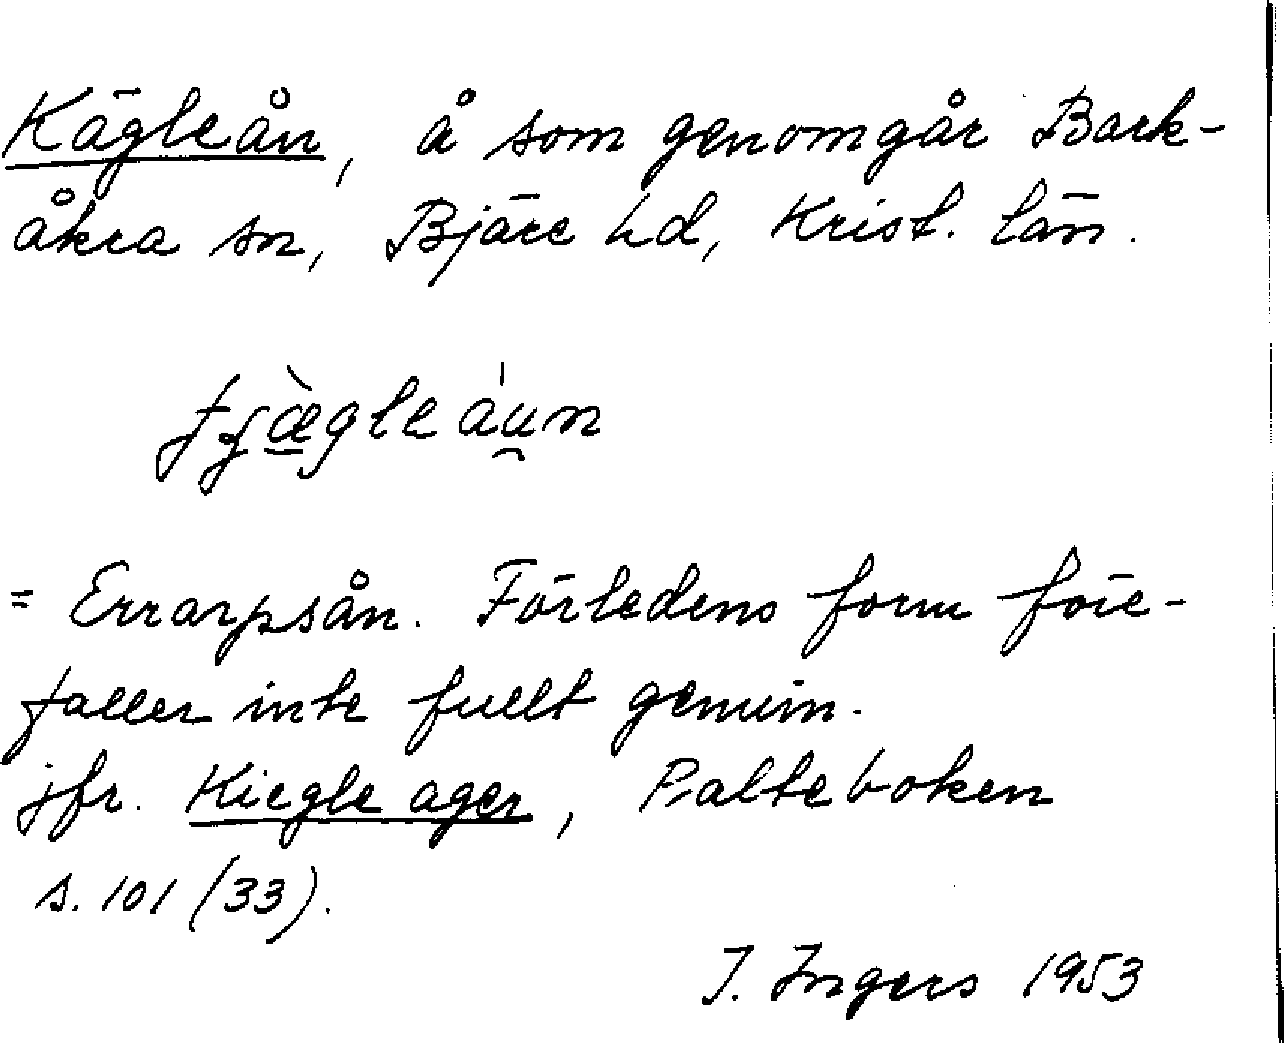 Kägleån, å som genomgår Bark-
åkra sn, Bjäre hd, Krist. län.
= Errarpsån. Förledens form före-
faller inte fullt genuin.
jfr. Kiegle ager, Palteboken
s. 101 (33).
I. Ingers 1953